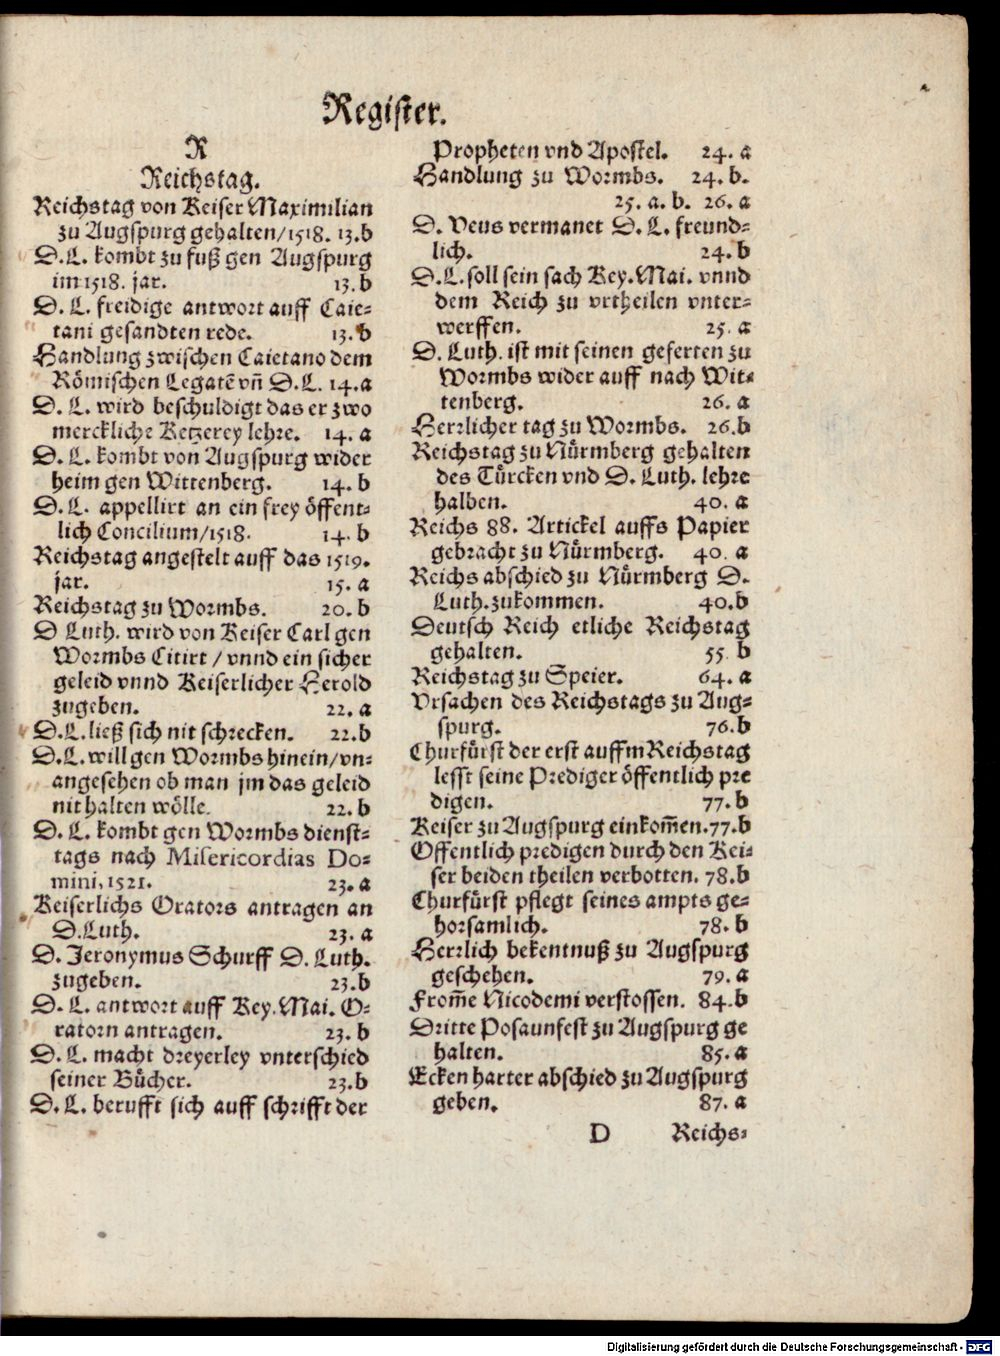 Register.
R
Reichstag.
Reichstag von Keiser Maximilian
zu Augspurg gehalten/1518. 13.b
D.L. kombt zu fuß gen Augspurg
im 1518. jar. 13.b
D. L. freidige antwort auff Caie-
tani gesandten rede. 13.b
Handlung zwischen Caietano dem
Römischen Legatē vñ D.L. 14.a
D. L. wird beschuldigt das er zwo
merckliche Ketzerey lehre. 14. a
D. L. kombt von Augspurg wider
heim gen Wittenberg. 14. b
D. L. appellirt an ein frey öffent-
lich Concilium/1518. 14. b
Reichstag angestelt auff das 1519.
jar. 15. a
Reichstag zu Wormbs. 20. b
D Luth. wird von Keiser Carl gen
Wormbs Citirt / vnnd ein sicher
geleid vnnd Keiserlicher Herold
zugeben. 22. a
D.L. ließ sich nit schrecken. 22.b
D.L. will gen Wormbs hinein/vn-
angesehen ob man jm das geleid
nit halten wölle. 22. b
D. L. kombt gen Wormbs dienst-
tags nach Misericordias Do-
mini, 1521. 23. a
Keiserlichs Orators antragen an
D.Luth. 23. a
D. Jeronymus Schurff D. Luth.
zugeben. 23.b
D. L. antwort auff Key. Mai. O-
ratorn antragen. 23. b
D. L. macht dreyerley vnterschied
seiner Bücher. 23.b
D. L. berufft sich auff schrifft der
Propheten vnd Apostel. 24. a
Handlung zu Wormbs. 24. b.
25. a. b. 26. a
D. Veus vermanet D. L. freund-
lich. 24. b
D.L. soll sein sach Key. Mai. vnnd
dem Reich zu vrtheilen vnter-
werffen. 25. a
D. Luth. ist mit seinen geferten zu
Wormbs wider auff nach Wit-
tenberg. 26. a
Herrlicher tag zu Wormbs. 26.b
Reichstag zu Nürmberg gehalten
des Türcken vnd D. Luth. lehre
halben. 40. a
Reichs 88. Artickel auffs Papier
gebracht zu Nürmberg. 40. a
Reichs abschied zu Nürmberg D.
Luth. zukommen. 40.b
Deutsch Reich etliche Reichstag
gehalten. 55. b
Reichstag zu Speier. 64. a
Vrsachen des Reichstags zu Aug-
spurg. 76.b
Churfürst der erst auffm Reichstag
lesst seine Prediger öffentlich pre
digen. 77. b
Keiser zu Augspurg einkom̃en. 77.b
Offentlich predigen durch den Kei-
ser beiden theilen verbotten. 78.b
Churfürst pflegt seines ampts ge-
horsamlich. 78. b
Herrlich bekentnuß zu Augspurg
geschehen. 79. a
From̃e Nicodemi verstossen. 84.b
Dritte Posaunfest zu Augspurg ge
halten. 85. a
Ecken harter abschied zu Augspurg
geben. 87. a
D Reichs-
Digitalisierung gefördert durch die Deutsche Forschungsgemeinschaft - DFG